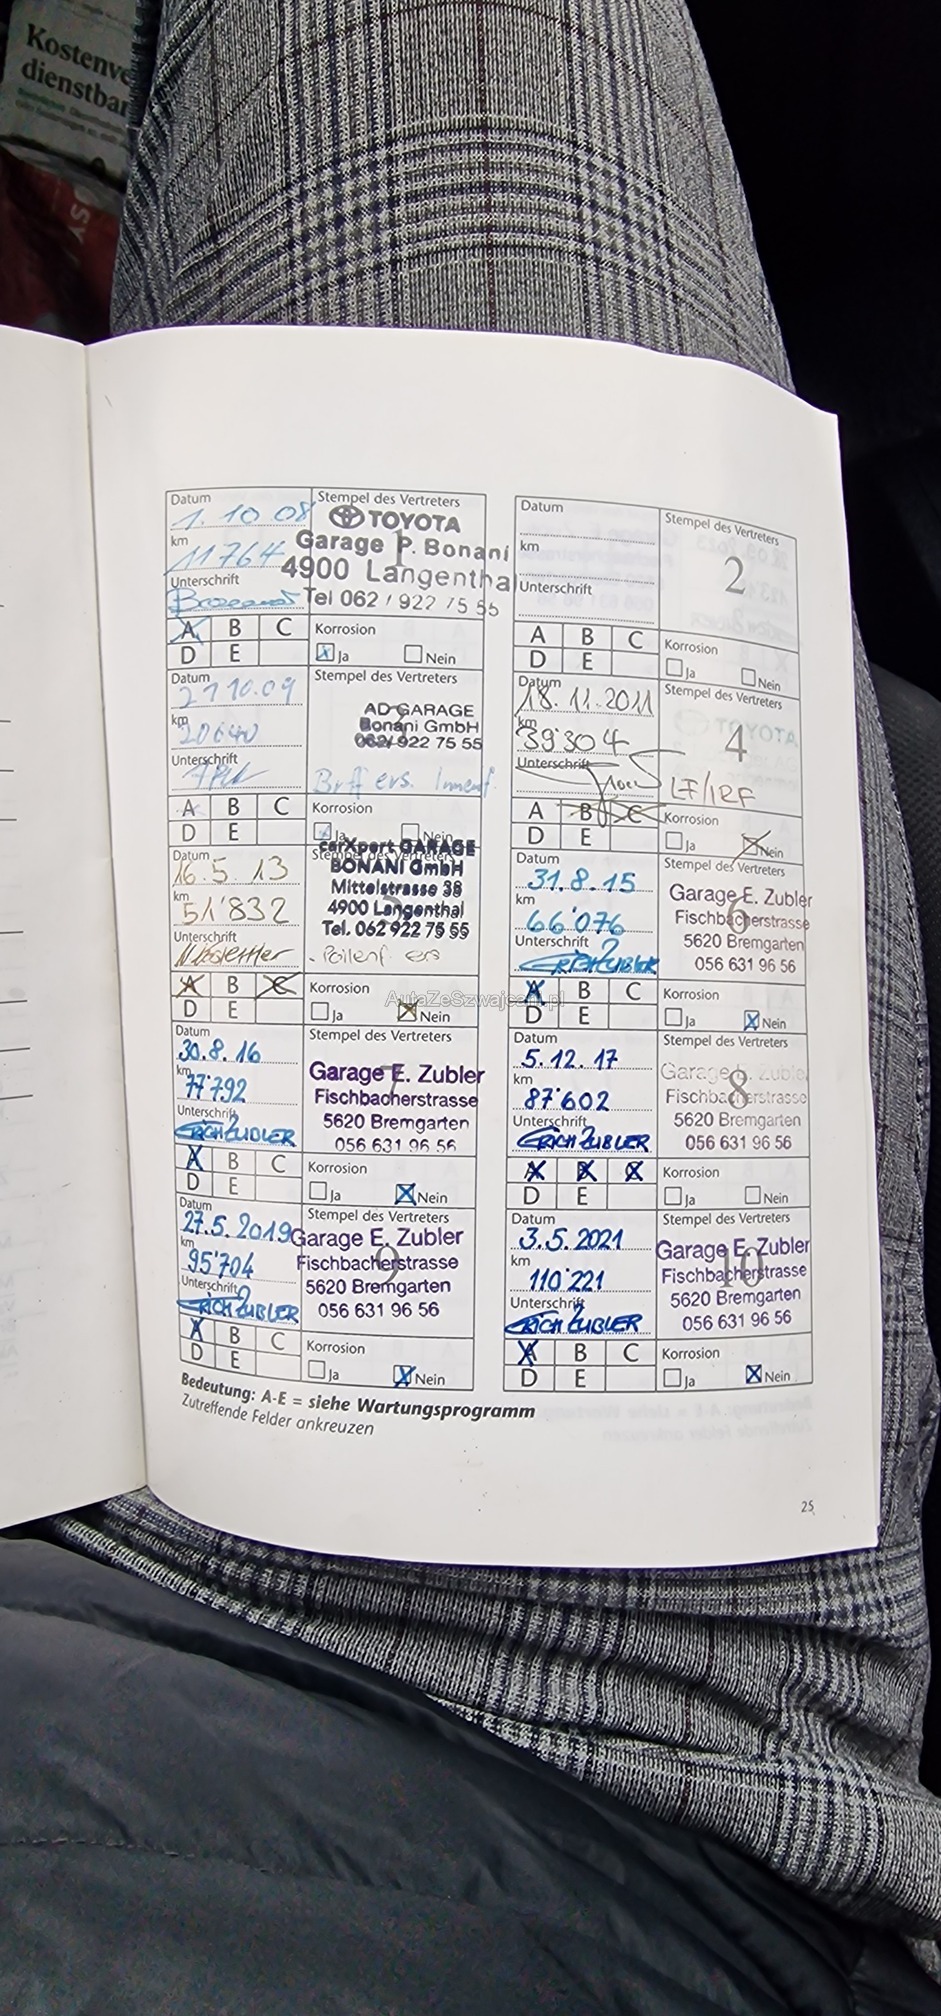 Kostenve
dienstbar
Datum
1.10 08
km
11764
Unterschrift
Stempel des Vertreters
TOYOTA
1
Garage P. Bonani
4900 Langenthal
Tel 062 / 922 75 55
A B C
D E
Korrosion
Ja Nein
Datum
km
Unterschrift
Stempel des Vertreters
2
A B C
D E
Korrosion
Ja Nein
Datum
27 10.09
km
20640
Unterschrift
Stempel des Vertreters
3
AD GARAGE
Bonani GmbH
062/ 922 75 55
A B C
D E
Korrosion
Ja Nein
Datum
18.11.2011
km
39'304
Unterschrift
Stempel des Vertreters
4
LF/IRF
A B C
D E
Korrosion
Ja Nein
Datum
16.5.13
km
51'832
Unterschrift
Stempel des Vertreters
carXpert GARAGE
BONANI GmbH
Mittelstrasse 38
4900 Langenthal
Tel. 062 922 75 55
Pollenf ers
A B C
D E
Korrosion
Ja Nein
Datum
31.8.15
km
66'076
Unterschrift
ERICH ZUBLER
Stempel des Vertreters
6
Garage E. Zubler
Fischbacherstrasse
5620 Bremgarten
056 631 96 56
A B C
D E
Korrosion
Ja Nein
AutaZeSzwajcarii.pl
Datum
30.8.16
km
77'792
Unterschrift
ERICH ZUBLER
Stempel des Vertreters
7
Garage E. Zubler
Fischbacherstrasse
5620 Bremgarten
056 631 96 56
A B C
D E
Korrosion
Ja Nein
Datum
5.12.17
km
87'602
Unterschrift
ERICH ZUBLER
Stempel des Vertreters
8
Garage E. Zubler
Fischbacherstrasse
5620 Bremgarten
056 631 96 56
A B C
D E
Korrosion
Ja Nein
Datum
27.5.2019
km
95'704
Unterschrift
ERICH ZUBLER
Stempel des Vertreters
9
Garage E. Zubler
Fischbacherstrasse
5620 Bremgarten
056 631 96 56
A B C
D E
Korrosion
Ja Nein
Datum
3.5.2021
km
110'221
Unterschrift
ERICH ZUBLER
Stempel des Vertreters
10
Garage E. Zubler
Fischbacherstrasse
5620 Bremgarten
056 631 96 56
A B C
D E
Korrosion
Ja Nein
Bedeutung: A-E = siehe Wartungsprogramm
Zutreffende Felder ankreuzen
25